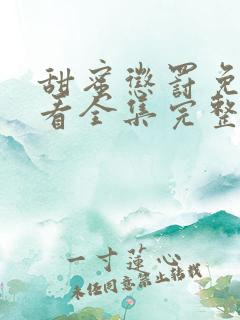 甜蜜惩罚免
看全集完整
一寸莲心
未经同意禁止转载